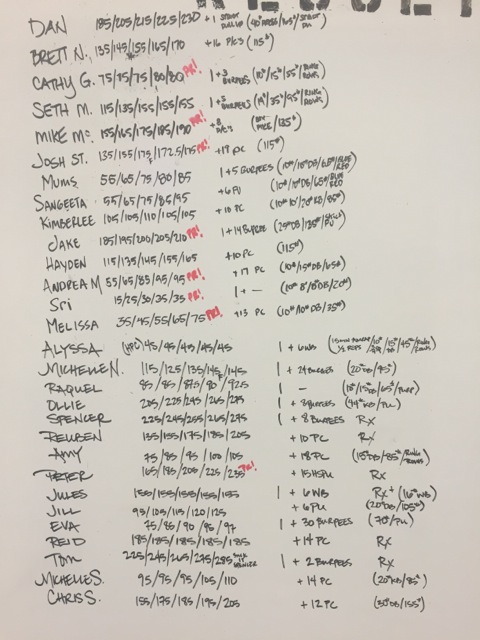 DAN 185/205/215/225/230 +1
BRETT N. 135/145/155/165/170 +16 PC'S (115#)
CATHY G. 75/75/75/80/80 PR! 1+3 BURPEES (10#/15#/55#/RING ROWS)
SETH M. 115/135/155/155/155 1+5 BURPEES (14#/35#/95#/RING ROWS)
MIKE Mc. 155/165/175/185/190 PR! +8 PC'S /135#)
JOSH ST. 135/155/175F/172.5/175 PR! +19 PC (115#)
MUMS 55/65/75/80/85 1+5 BURPEES (10#/10#DB/65#/BLUE RED
SANGEETA 55/65/75/85/95 +6PU (10#/10#DB/65#/BLUE RED
KIMBERLEE 105/105/110/105/105 +10 PC (10#10'/20#KB/85#)
JAKE 185/195/200/205/210 PR! 1+14 BURPEE (25#DB/135#/
HAYDEN 115/135/145/155/165 +10PC (115#)
ANDREA M 55/65/85/95/95 PR! +17 PC (10#/15#DB/65#)
SRI 15/25/30/35/35 PR! 1+ — (10# 8'/8#DB/20#)
MELISSA 35/45/55/65/75 PR! +13 PC (10#/10#DB/35#)
ALYSSA (HPC) 45/45/45/45/45 1+6WB
MICHELLE N. 115/125/135/145F/145 1+24 BURPEES (20#DB/85#)
RAQUEL 85/85/87.5/90/92.5 1 — (10#/15#DB/65#/
OLLIE 205/225/245/265/275 1+3 BURPEES (44#KB/PU)
SPENCER 225/245/255/265/275 1+8 BURPEES RX
REUBEN 135/155/175/185/205 +10 PC RX
AMY 75/85/95/100/105 +18PC (15#DB/85#/RING ROWS)
PETER 165/185/205/225/235 PR! +15HSPU RX
JULES 155/155/155/155/155 1+6WB RX+ (16#WB)
JILL 95/105/115/120/125 +6PU (20#DB/105#)
EVA 75/85/90/95/97 1+30 BURPEES (70#/PU)
REID 185/185/185/185/185 +14PC RX
TOM 225/245/265/275/285 1+2 BURPEES RX
MICHELLE S. 95/95/95/105/110 +14 PC (20#KB/85#)
CHRIS S. 155/175/185/195/205 +12PC (30#DB/155#)